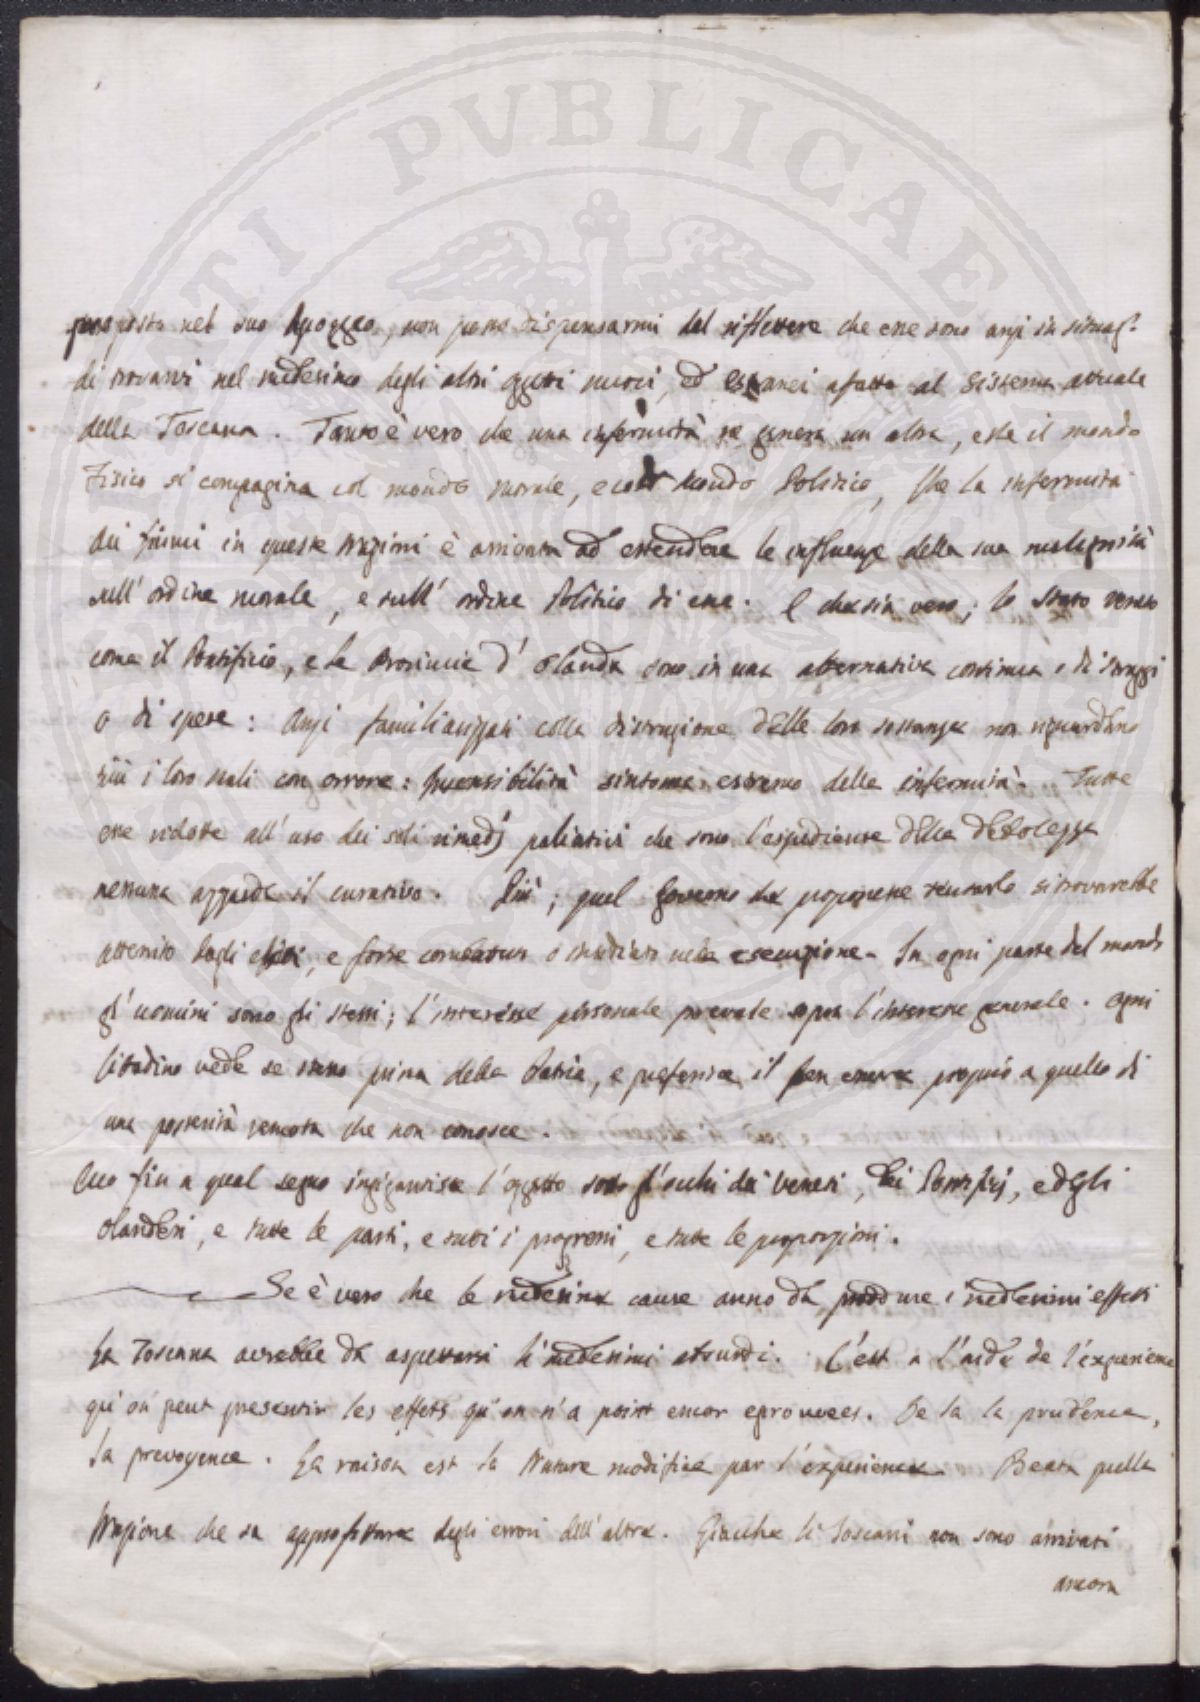 PUBLICAE
proposta nel suo Apogeo, non posso dispensarmi dal riflettere che esse sono anzi in situaz.e
di trovarsi nel medesimo degli altri oggetti nuovi, ed estranei afatto al Sistema attuale
della Toscana. Tanto è vero che una infermità ne genera un altra, e se il mondo
Fisico si compagina col mondo morale, e col Mondo Politico, che la infermità
dei fiumi in queste Nazioni è arrivata ad estendere le influenze della sua malignità
sull' ordine morale, e sull' ordine Politico di esse. E che sia vero; lo Stato Veneto
come il Pontificio, e le Provincie d' Olanda sono in una alternativa continua o di straggi
o di spese: anzi familiarizzati colla distruzione delle loro sostanze non riguardano
più i loro mali con orrore: Insensibilità sintoma estremo delle infermità. Tutte
esse ridotte all' uso dei soli rimedj paliativi che sono l'espediente della debolezza
nessuna azzarda il curativo. Più; quel Governo che proponesse tentarlo si trovarebbe
atterrito dagli esiti, e forse combattuto o insidiato nella esecuzione. In ogni parte del mondo
gl' uomini sono gli stessi; l'interesse personale prevale sopra l'interesse generale. Ogni
Cittadino vede se stesso prima della Patria, e preferisce il ben essere proprio a quello di
una posterità remota che non conosce.
Ecco fin a qual segno ingigantisce l'oggetto sotto gl'occhi dei Veneti, dei Pontifizj, e degli
Olandesi, e tutte le parti, e tutti i progressi, e tutte le proporzioni.
Se è vero che le medesime cause anno da produrre i medesimi effetti
La Toscana avrebbe da aspettarsi li medesimi assurdi. C'est a l'aide de l'experience
qu'on peut presentir les effets qu'on n'a point encor eprouvees. De la la prudence,
la prevoyence. La raison est la Nature modifiee par l'experience. Beata quella
Nazione che sa approfittare degli errori dell'altre. Giacche li Toscani non sono arrivati
ancora